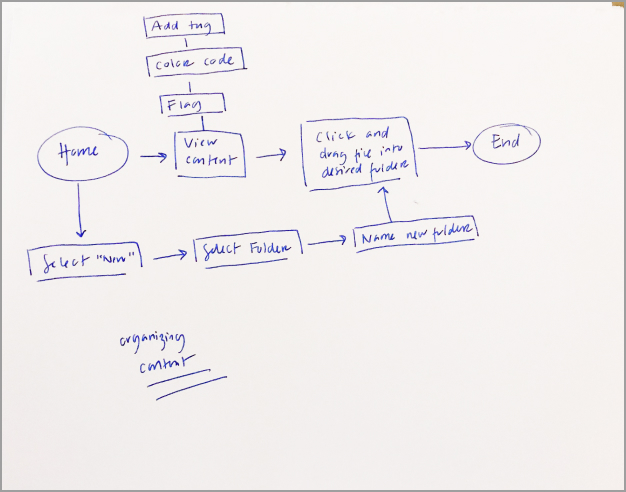 Add tag
Color code
Flag
Home
View
content
Click and
drag file into
desired folder
End
Select "New"
Select Folder
Name new folder
organizing
content